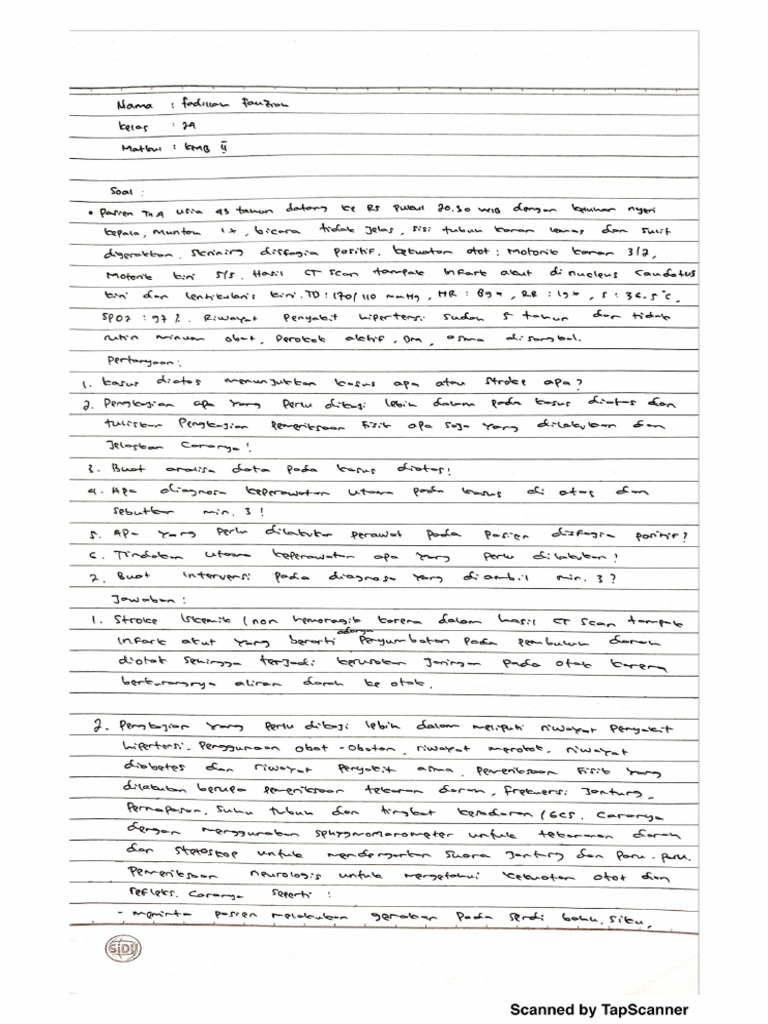 Nama : Fadillah Fauziah
Kelas : 2A
Matkul : KMB II
Soal :
• Pasien Tn.A usia 43 tahun datang ke RS pukul 20.30 WIB dengan keluhan nyeri
kepala, muntah 1x, bicara tidak jelas, sisi tubuh kanan lemas dan sulit
digerakkan. Skrining disfagia positif. kekuatan otot : Motorik kanan 3/2,
Motorik kiri 5/5. Hasil CT Scan tampak infark akut di nucleus caudatus
kiri dan lentikularis kiri. TD : 170/110 mmHg, HR : 89x, RR : 19x, S : 36.5°C,
SPO2 : 97%. Riwayat Penyakit hipertensi sudah 5 tahun dan tidak
rutin minum obat, Perokok aktif, DM, asma disangkal.
Pertanyaan :
1. kasus diatas menunjukkan kasus apa atau stroke apa?
2. Pengkajian apa yang perlu dikaji lebih dalam pada kasus diatas dan
tuliskan Pengkajian pemeriksaan fisik apa saja yang dilakukan dan
Jelaskan caranya!
3. Buat analisa data pada kasus diatas!
4. Apa diagnosa keperawatan utama pada kasus di atas dan
sebutkan min. 3!
5. Apa yang perlu dilakukan perawat pada pasien disfagia positif?
6. Tindakan utama keperawatan apa yang perlu dilakukan!
7. Buat intervensi pada diagnosa yang diambil min. 3?
Jawaban :
1. Stroke Iskemik / non hemoragik karena dalam hasil CT Scan tampak
infark akut yang berarti adanya Penyumbatan pada pembuluh darah
diotak sehingga terjadi kerusakan Jaringan pada otak karena
berkurangnya aliran darah ke otak.
2. Pengkajian yang perlu dikaji lebih dalam meliputi riwayat Penyakit
hipertensi, Penggunaan obat-obatan, riwayat merokok, riwayat
diabetes dan riwayat Penyakit asma. Pemeriksaan Fisik yang
dilakukan berupa pemeriksaan tekanan darah, Frekuensi Jantung,
Pernapasan, Suhu tubuh dan tingkat kesadaran / GCS. Caranya
dengan menggunakan sphygmomanometer untuk tekanan darah
dan stetoskop untuk mendengarkan suara Jantung dan paru-paru.
Pemeriksaan neurologis untuk mengetahui kekuatan otot dan
refleks. Caranya seperti :
- meminta pasien melakukan gerakan pada sendi bahu, siku,
SIDU
Scanned by TapScanner